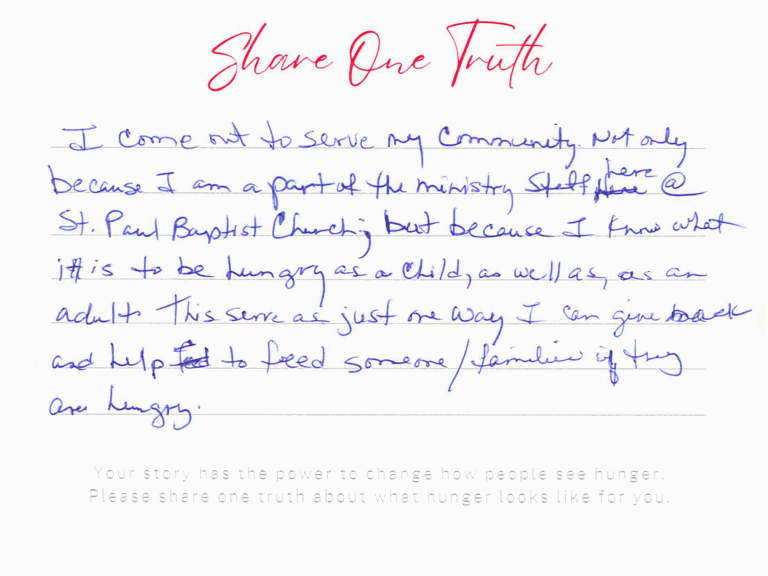 Share One Truth
I come out to serve my Community. Not only
because I am a part of the ministry Staff here @
St. Paul Baptist Church; but because I know what
it is to be hungry as a child, as well as, as an
adult. This serve as just one way I can give back
and help to feed someone/families if they
are hungry.
Your story has the power to change how people see hunger.
Please share one truth about what hunger looks like for you.